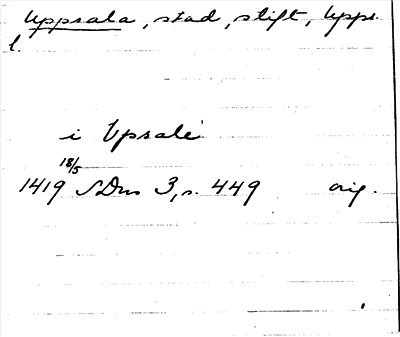 Uppsala, stad, stift, Upps.
l.
i Vpsale
18/5
1419 SDns 3, s. 449 orig.